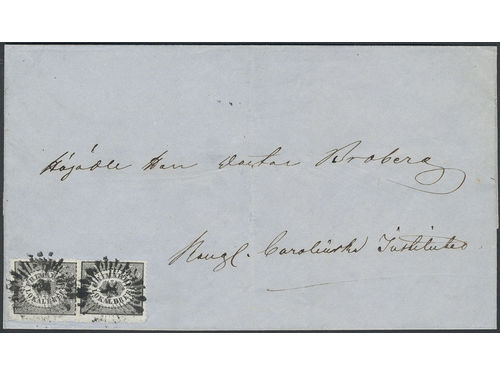 Högädle Herr Doctor Broberg
Kongl. Carolinska Institutet